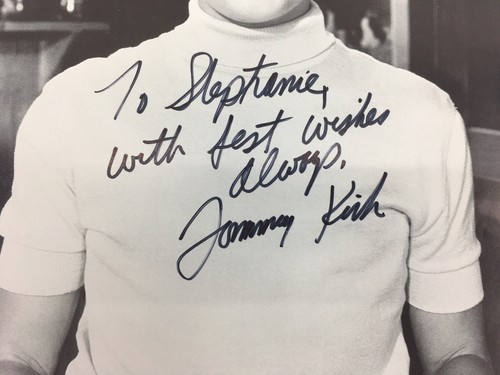 To Stephanie,
with best wishes
always,
Tommy Kirk